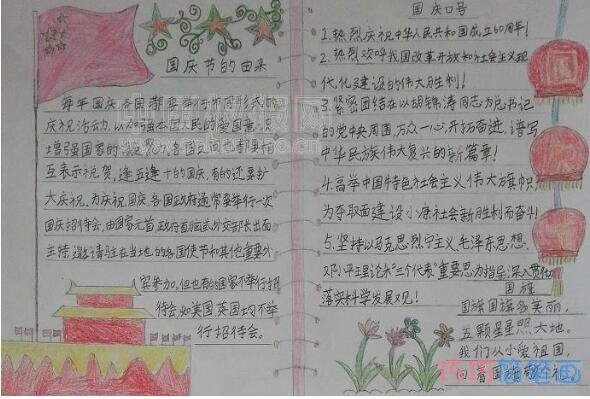 国庆节的由来
每年国庆,各国都要举行不同形式的
庆祝活动,以加强本国人民的爱国意识,
增强国家的凝聚力。各国之间也都要相
互表示祝贺。逢五逢十的国庆,有的还要扩
大庆祝。为庆祝国庆,各国政府通常要举行一次
国庆招待会,由国家元首、政府首脑或外交部长出面
主持,邀请驻在当地的各国使节和其他重要外
宾参加。但也有的国家不举行招
待会,如美国、英国均不举
行招待会。
国庆口号
1.热烈庆祝中华人民共和国成立60周年!
2.热烈欢呼我国改革开放和社会主义现
代化建设的伟大胜利!
3.紧密团结在以胡锦涛同志为总书记
的党中央周围,万众一心,开拓奋进,谱写
中华民族伟大复兴的新篇章!
4.高举中国特色社会主义伟大旗帜,
为夺取全面建设小康社会新胜利而奋斗!
5.坚持以马克思列宁主义、毛泽东思想、
邓小平理论和“三个代表”重要思想为指导,深入贯彻
落实科学发展观!
国旗
国旗国旗多美丽,
五颗星星照大地。
我们从小爱祖国,
向着国旗敬个礼。
国
庆
简笔画